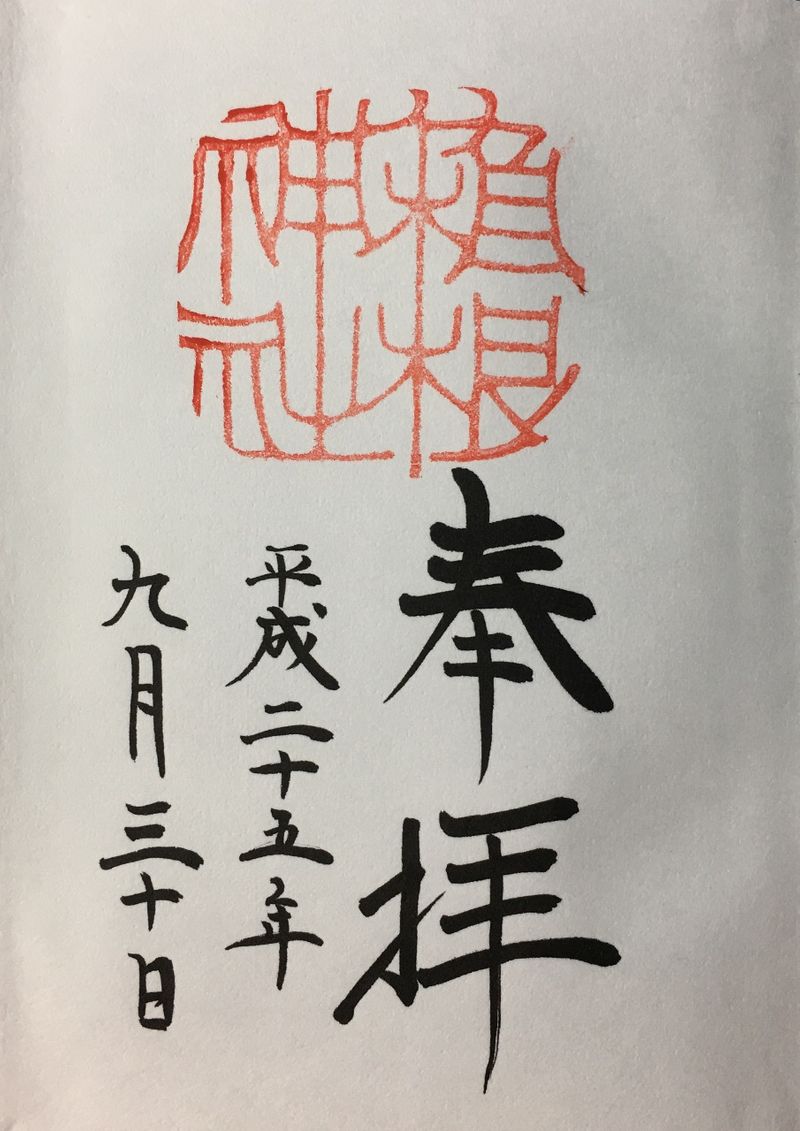 箱根
神社
奉拝
平成二十五年
九月三十日